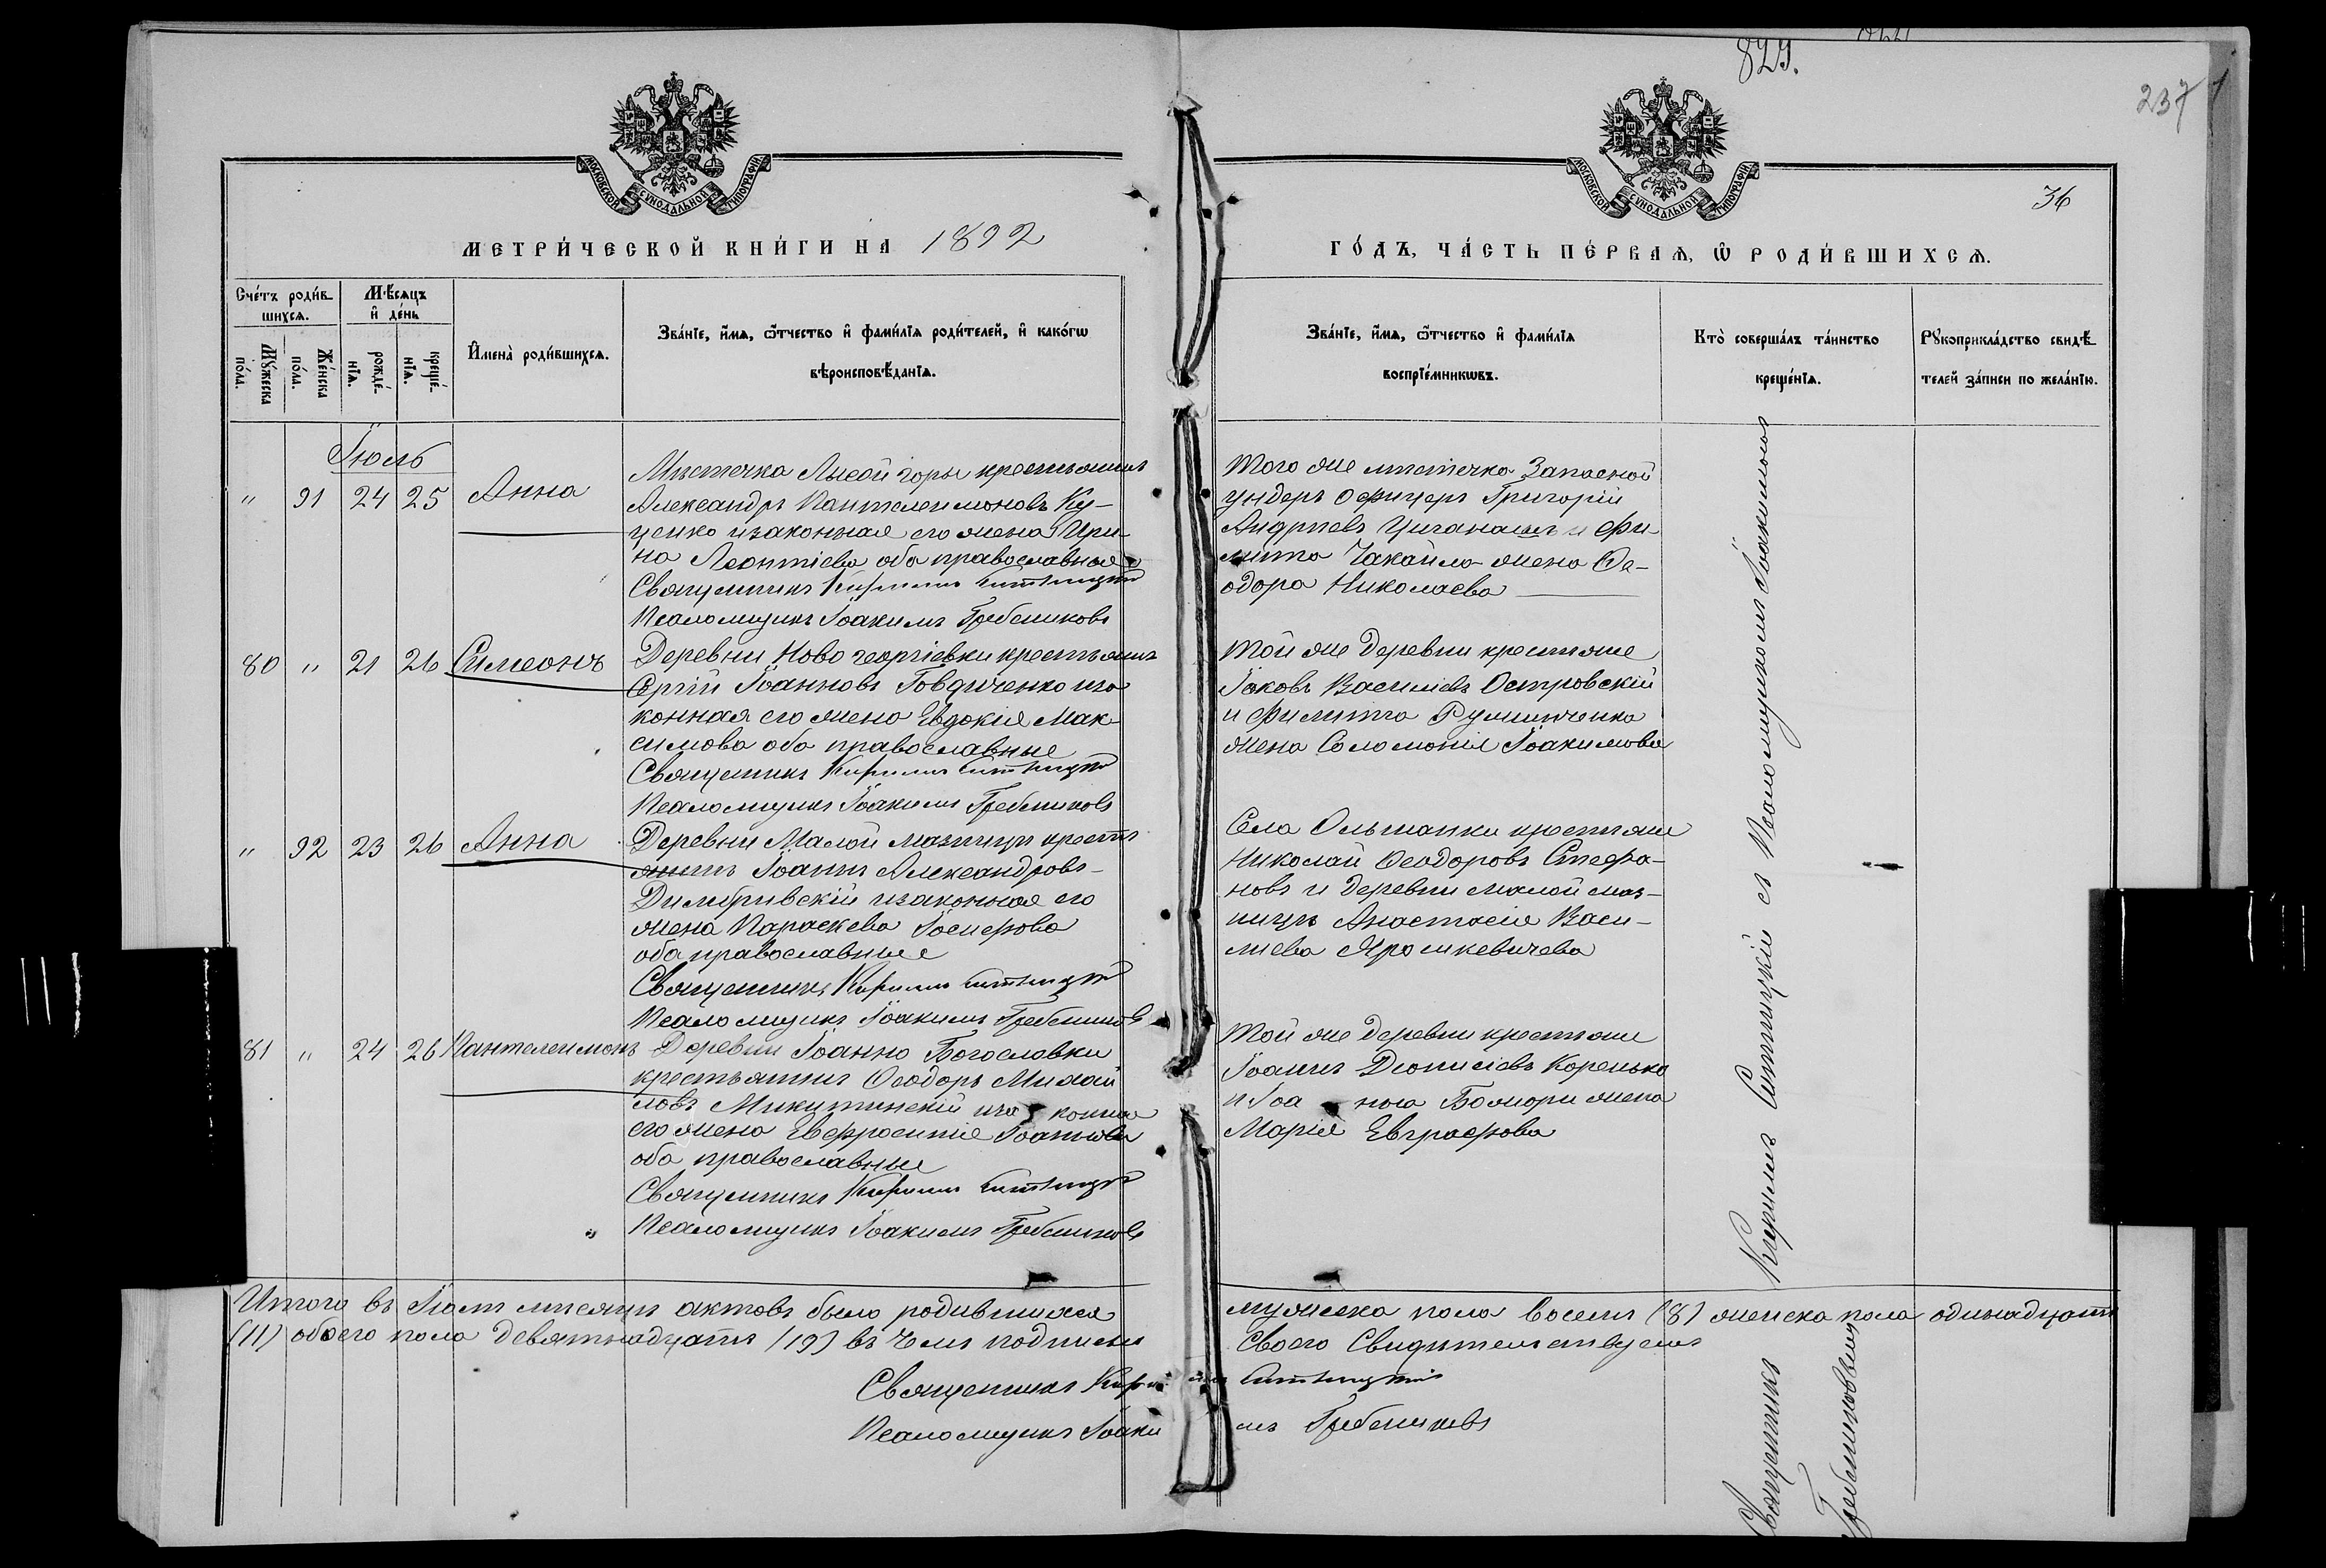 829.
237
36
МОСКОВСКОЙ СУНОДАЛЬНОЙ ТИПОГРАФІИ
МОСКОВСКОЙ СУНОДАЛЬНОЙ ТИПОГРАФІИ
МЕТРИ́ЧЕСКОЙ КНИ́ГИ НА 1892
ГО́ДЪ, ЧА́СТЬ ПЕ́РВАѦ, Ѡ҆ РОДИ́ВШИХСѦ.
Сче́тъ роди́вшихсѧ.
Мꙋ́жеска по́ла.
Же́нска по́ла.
Мѣ́сѧцъ и҆ де́нь
рожде́нїѧ.
креще́нїѧ.
И҆мена̀ роди́вшихсѧ.
Зва́нїе, и҆́мѧ, ѻ҆́тчество и҆ фами́лїѧ роди́телей, и҆ како́гѡ
вѣроисповѣ́данїѧ.
Зва́нїе, и҆́мѧ, ѻ҆́тчество и҆ фами́лїѧ
воспрїе́мникѡвъ.
Кто̀ соверша́лъ та́инство
креще́нїѧ.
Рꙋкоприкла́дство свидѣ́телей за́писи по жела́нїю.
Іюль
" 91 24 25 Анна
Мѣстечка Лысой горы крестьянинъ
Александръ Пантелеимоновъ Ку-
ценко изаконная его жена Ири-
на Леонтіева оба православные
Священникъ Кириллъ Ситницкій
Псаломщикъ Іоакимъ Гребениковъ
Того же мѣстечка Запасной
ундеръ офицеръ Григорій
Андреевъ Циганашъ и Фи-
липа Чакайло жена Ѳе-
одора Николаева
80 " 21 26 Симеонъ
Деревни Ново георгіевки крестьянинъ
Сергій Іоанновъ Говдиченко иза
конная его жена Евдокія Мак-
симова оба православные
Священникъ Кириллъ Ситницкій
Псаломщикъ Іоакимъ Гребениковъ
Той же деревни крестьяне
Іаковъ Василіевъ Островскій
и Филипа жена Соломонія Іоакимова
" 92 23 26 Анна
Деревни Малой мазницы кресть
янинъ Іоаннъ Александровъ
изаконная его
жена Параскева Іосифова
оба православные
Священникъ Кириллъ Ситницкій
Псаломщикъ Іоакимъ Гребениковъ
Села Ольшанки крестьяне
Николай Ѳеодоровъ Стефа-
новъ и деревни малой маз-
ницы Анастасія Васи-
лиева Ярошкевичева
81 " 24 26 Пантелеимонъ
Деревни Іоанно Богословки
крестьянинъ Ѳеодоръ Михай
ловъ Микитинскій иза конная
его жена Евфросинія Іоаннова
оба православные
Священникъ Кириллъ Ситницкій
Псаломщикъ Іоакимъ Гребениковъ
Той же деревни крестьяне
Іоаннъ Діонисіевъ Коренько
и Іоа нна жена
Марія Евграфова
Священникъ Кириллъ Ситницкій съ Псаломщикомъ Іоакимомъ
Гребениковымъ
Итого въ Іюлѣ мѣсяцѣ актовъ было родившихся мужеска пола восемь (8) женска пола одинадцать
(11) обоего пола девятнадцать (19) въ чемъ подписомъ своего свидѣтельствуемъ
Священникъ Кириллъ Ситницкій
Псаломщикъ Іоакимъ Гребениковъ